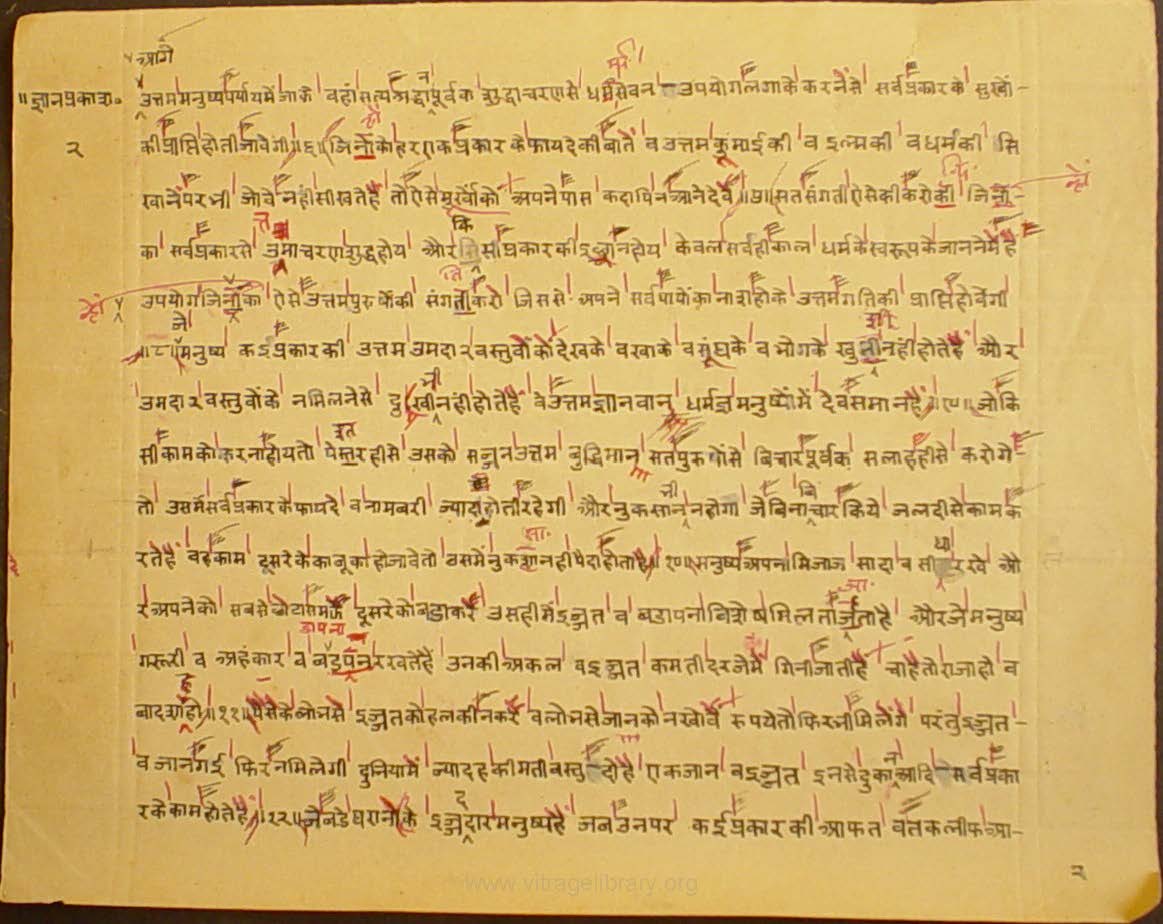 आगे
॥ज्ञानप्रकाश॰ उत्तममनुष्यपर्यायमें जाके वहां सत्यश्रद्धानपूर्वक शुद्धाचरणसे धर्मसेवन उपयोगलगाके करनेसे सर्वप्रकारके सुखों-
२ कीप्राप्तिहोतीजावेगी॥६॥जिनोंकोहरएकप्रकार केफायदेकीबातें व उत्तमकुमाईकी व इल्मकी वधर्मकी सि
खानेंपरभी जोवे नहींसीखतेहैं तो ऐसेमूर्खोंको अपनेपास कदापिनआनेदेवें॥७॥सतसंगती ऐसेकी करोकी जिनों-
का सर्वप्रकारसे उत्तमाचरणशुद्धहोय और किसीप्रकारकी इच्छानहोय केवलसर्वहीकाल धर्मकेस्वरूपकेजाननेमेंहै
उपयोगजिनोंका ऐसे उत्तमपुरुषोंकी संगतीकरो जिससे अपने सर्वपापोंकानाशहोके उत्तमगतिकी प्राप्तिहोवेगी
॥८॥जेमनुष्य कइप्रकारकी उत्तम उमदा२वस्तुवोंकोदेखके वखाके वसूंघके व भोगके खुशीनहींहोतेहैं और
उमदा२वस्तुवोंके नमिलनेसे दुखीभीनहींहोतेहैं वे उत्तमज्ञानवान् धर्मज्ञमनुष्योंमें देवसमानहैं॥९॥जोकि
सीकामकोकरनाहोयतो पेस्तरहीसे उसको सज्जनउत्तम बुद्धिमान् सतपुरुषोंसे बिचारपूर्वक सलाहहीसे करोगे
तो उसमेंसर्वप्रकारकेफायदे वनामबरी ज्यादाहोतीरहेगी औरनुकसानभीनहोगा जेबिनाबिचारकिये जलदीसेकामक
रतेहैं वहकाम दूसरेकेकाबूकाहोजावेतो उसमेंनुकशानहीपैदाहोताहै॥१०॥मनुष्यअपनामिजाज सादा व सीधारखे औ
रअपनेको सबसेछोटासमजे दूसरेकोबडाकरे उसहीमेंइज्जत व बडापनाविशेषमिलताजाताहै औरजेमनुष्य
गरूरी व अहंकार व बडापनारखतेहैं उनकीअकल वइज्जत कमतीदरजेमें गिनीजातीहै चाहेतोराजाहो व
बादशाहहो॥११॥पैसेकेलोभसे इज्जतकोहलकीनकरें वलोभसेजानकोनखोवें रुपयेतोफिरभीमिलेंगे परंतुइज्जत-
व जानगई फिरनमिलेगी दुनियामें ज्यादहकीमतीवस्तु दोहैं एकजान वइज्जत इनसेदुकानआदि सर्वप्रका
रकेकामहोतेहैं॥१२॥जेबडेघरानेंके इज्जतदारमनुष्यहैं जबउनपर कईप्रकारकीआफत वतकलीफआ-
२
www.vitragelibrary.org